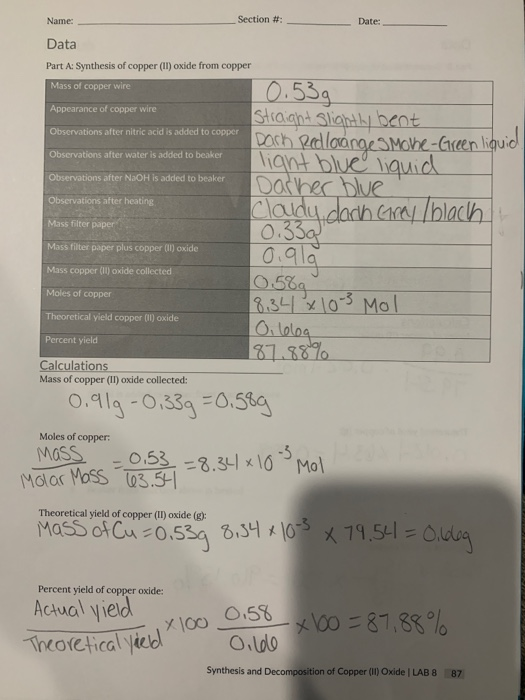 Name: Section #: Date:
Data
Part A: Synthesis of copper (II) oxide from copper
Mass of copper wire 0.53g
Appearance of copper wire Straight slightly bent
Observations after nitric acid is added to copper Dark Red/orange smoke-Green liquid
Observations after water is added to beaker light blue liquid
Observations after NaOH is added to beaker Darker blue
Observations after heating Cloudy, dark Gray/black
Mass filter paper 0.33g
Mass filter paper plus copper (II) oxide 0.91g
Mass copper (II) oxide collected 0.58g
Moles of copper 8.341 x 10⁻³ Mol
Theoretical yield copper (II) oxide 0.66g
Percent yield 87.88%
Calculations
Mass of copper (II) oxide collected:
0.91g - 0.33g = 0.58g
Moles of copper:
Mass / Molar Mass = 0.53 / 63.54 = 8.341 x 10⁻³ Mol
Theoretical yield of copper (II) oxide (g):
Mass of Cu = 0.53g 8.34 x 10⁻³ x 79.54 = 0.66g
Percent yield of copper oxide:
Actual yield / Theoretical yield x 100 0.58 / 0.66 x 100 = 87.88%
Synthesis and Decomposition of Copper (II) Oxide | LAB 8 87